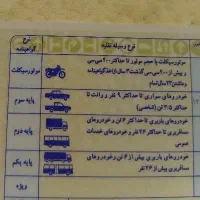 نوع گواهینامه
نوع وسیله نقلیه
موتورسیکلت
موتورسیکلت با حجم موتور تا حداکثر ۲۰۰ سی‌سی
و بیش از ۲۰۰ سی‌سی گذشت ۲ سال از اخذ گواهینامه
پایه سوم
خودروهای سواری تا حداکثر ۹ نفر و وانت تا
حداکثر ۳/۵ تن (شخصی)
پایه دوم
خودروهای باربری تا حداکثر ۶ تن و خودروهای
مسافربری تا حداکثر ۲۶ نفر خودروهای خدمات
عمومی
پایه یکم
خودروهای باربری بیش از ۶ تن و خودروهای
مسافربری بیش از ۲۶ نفر
ویژه